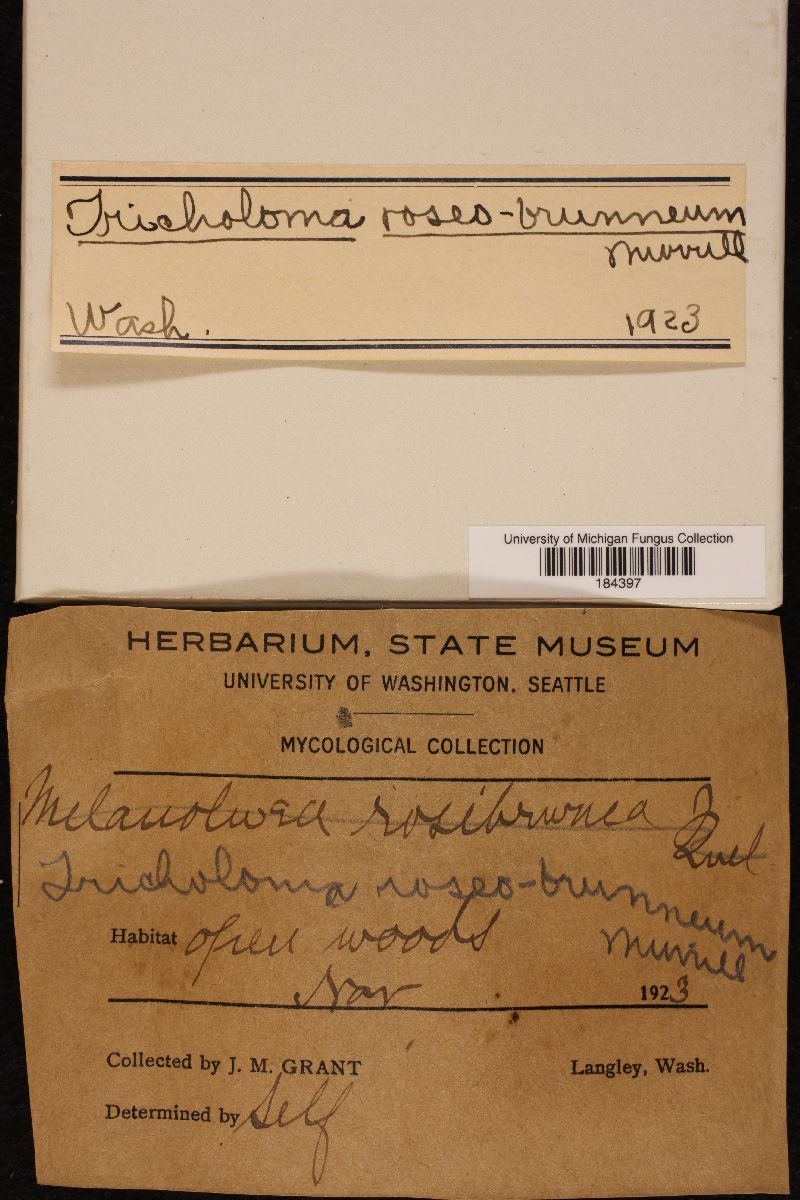 Tricholoma roseo-brunneum
Murrill
Wash. 1923
University of Michigan Fungus Collection
184397
HERBARIUM, STATE MUSEUM
UNIVERSITY OF WASHINGTON, SEATTLE
MYCOLOGICAL COLLECTION
Melanoleuca rosibrunea ?
Quel
Tricholoma roseo-brunneum
Murrill
Habitat open woods
Nov 1923
Collected by J. M. GRANT Langley, Wash.
Determined by Self